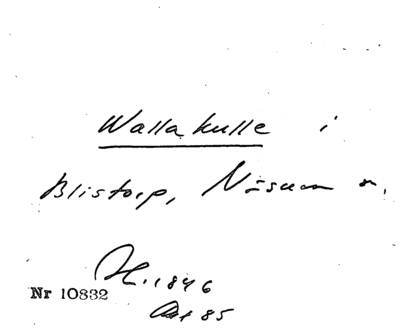 Wallakulle i
Blistorp, Näsum sn.
H. 1846
Nr 10832
85